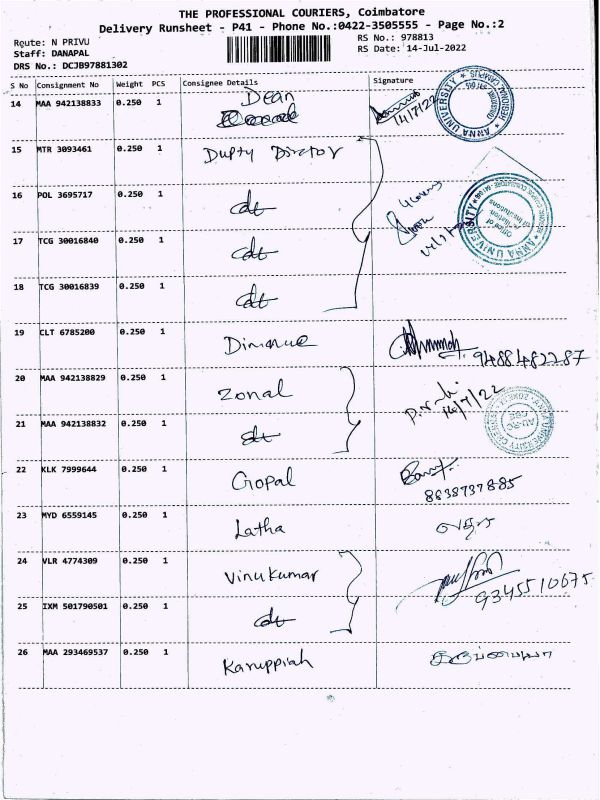 THE PROFESSIONAL COURIERS, Coimbatore
Delivery Runsheet - P41 - Phone No.:0422-3505555 - Page No.:2
Route: N PRIVU
RS No.: 978813
Staff: DANAPAL
RS Date: 14-Jul-2022
DRS No.: DCJB97881302
S No Consignment No Weight PCS Consignee Details Signature
14 MAA 942138833 0.250 1 Dean 14/7/22
ANNA UNIVERSITY REGIONAL CAMPUS
15 MTR 3093461 0.250 1 Dupty Dirctor
16 POL 3695717 0.250 1 do
ANNA UNIVERSITY
Office of
of Institutions
17 TCG 30016840 0.250 1 do
18 TCG 30016839 0.250 1 do
19 CLT 6785200 0.250 1 9488482287
20 MAA 942138829 0.250 1 Zonal 14/7/22
21 MAA 942138832 0.250 1 do
22 KLK 7999644 0.250 1 Gopal
8638737885
23 MYD 6559145 0.250 1 Latha லதா
24 VLR 4774309 0.250 1 Vinukumar
9345510675
25 IXM 501790501 0.250 1 do
26 MAA 293469537 0.250 1 Karuppiah